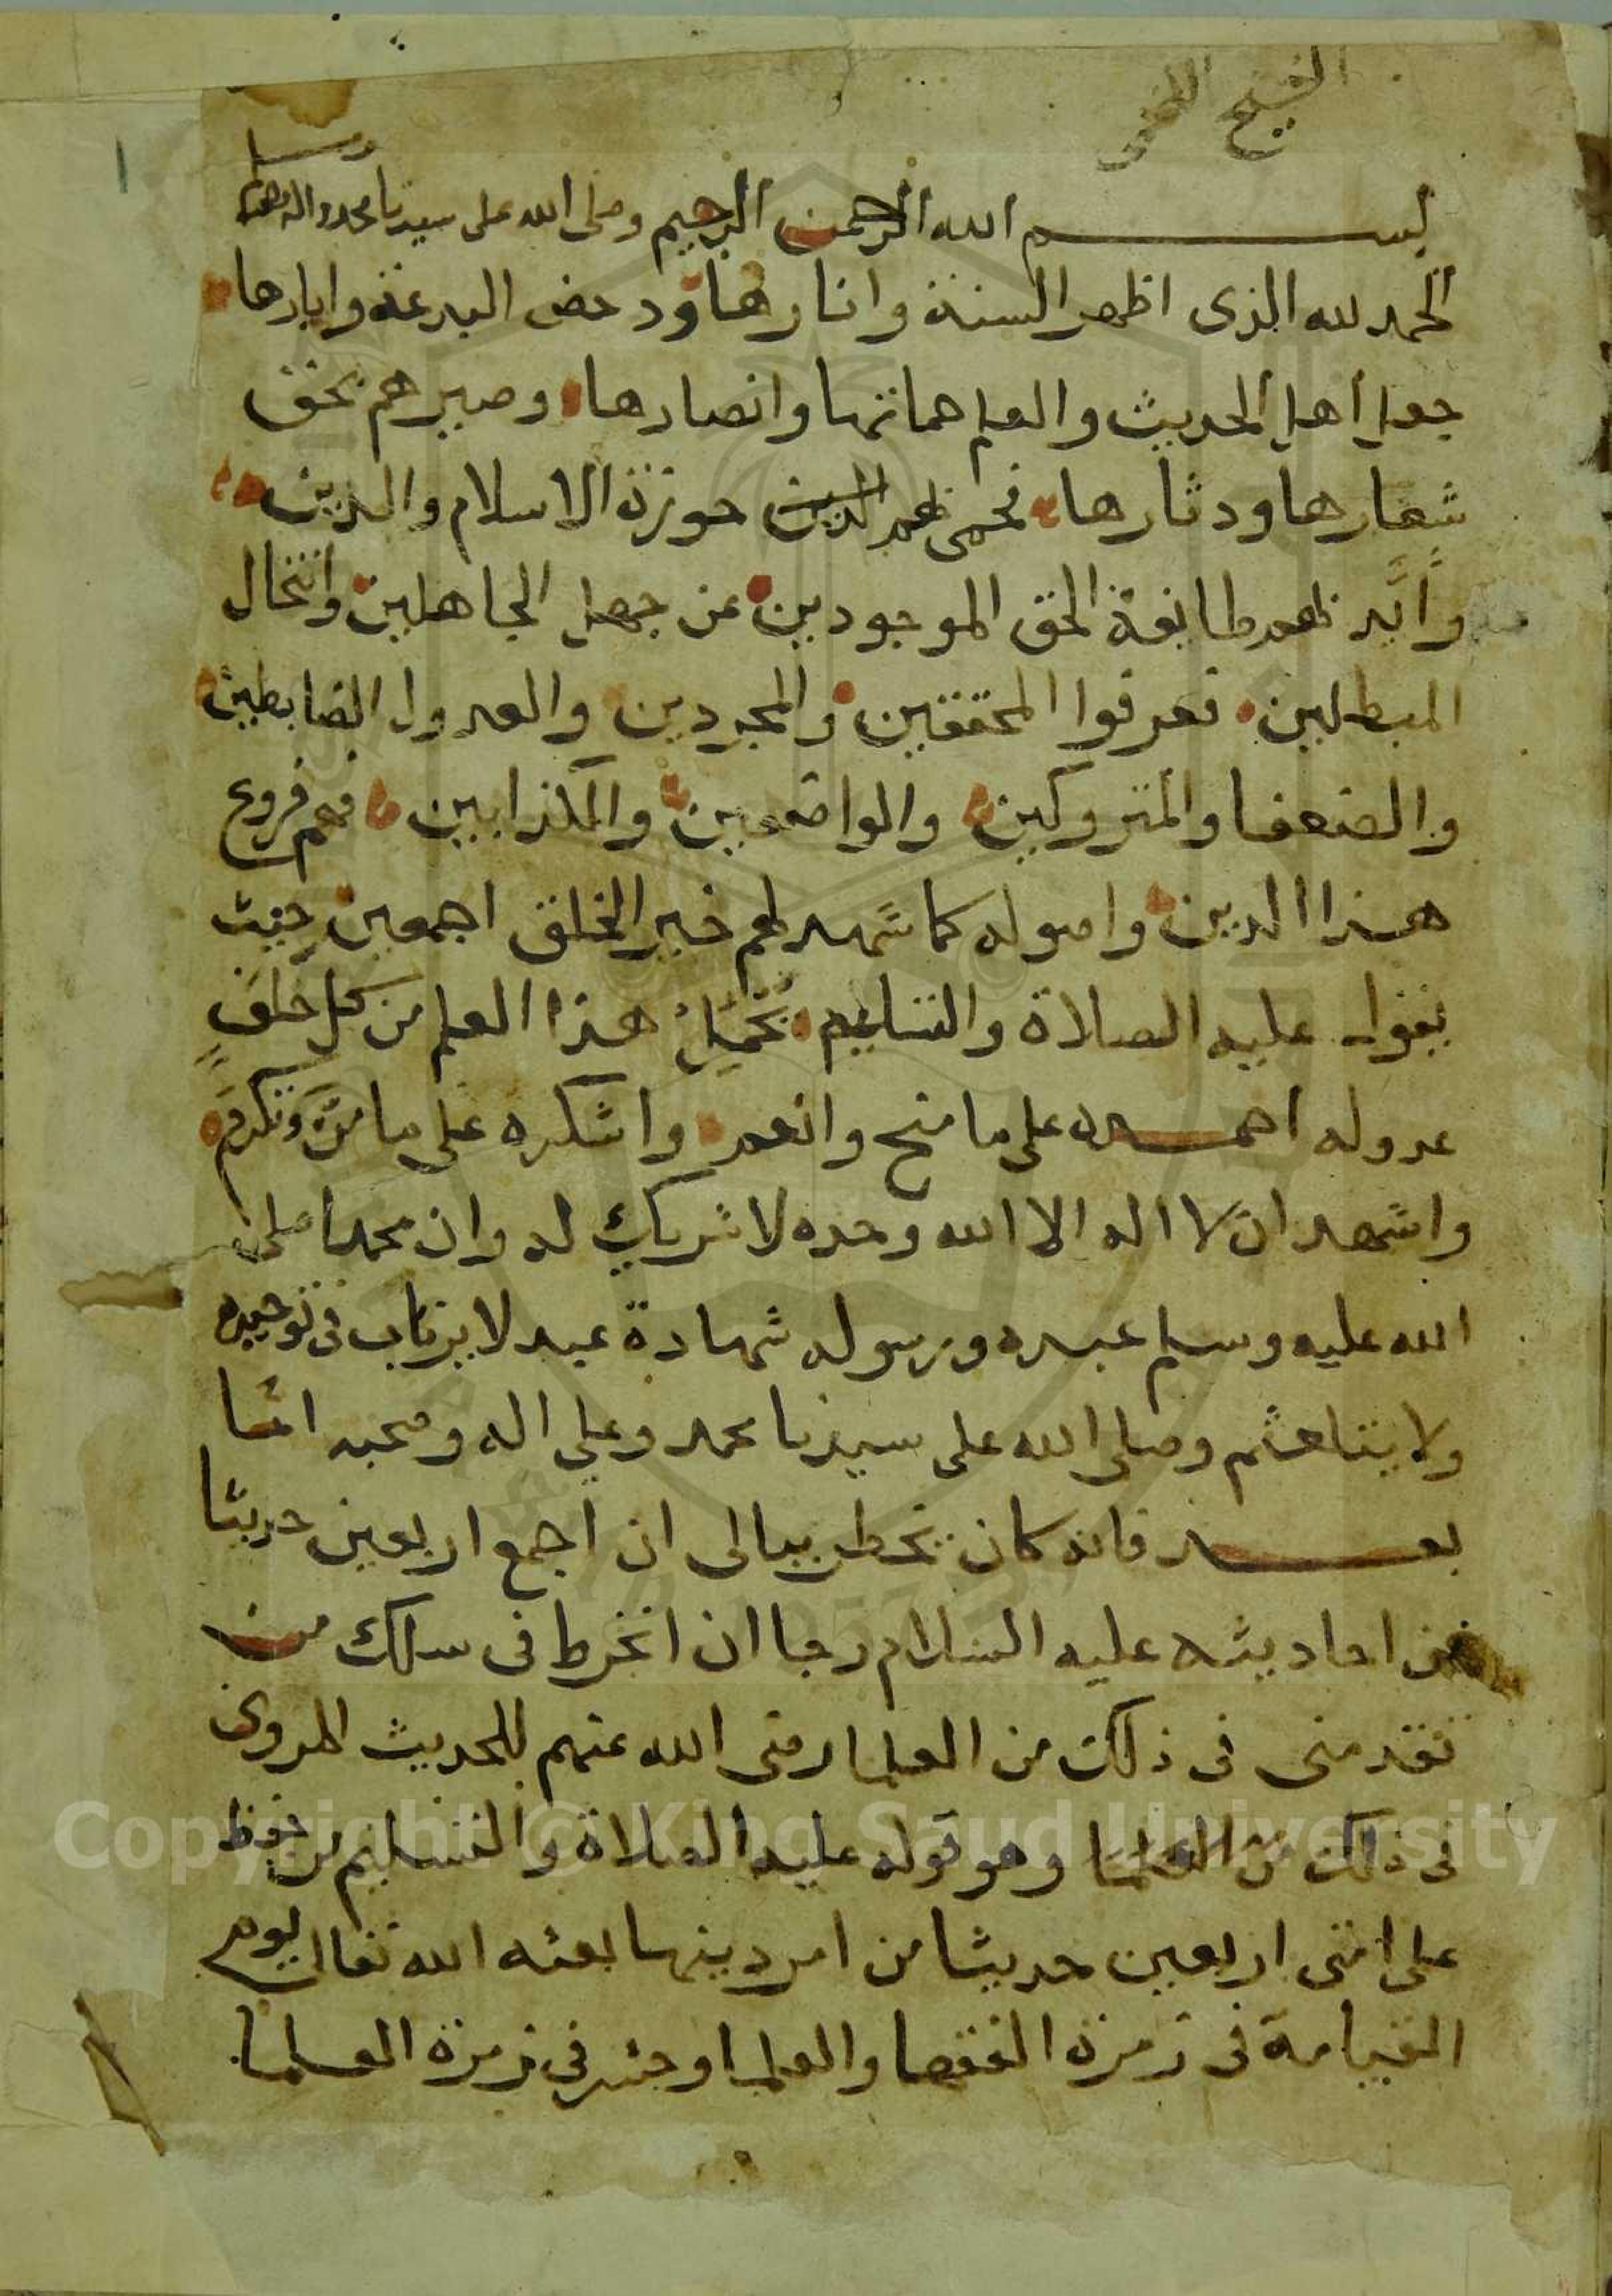 الشيخ
وسلم
بسم الله الرحمن الرحيم وصلى الله على سيدنا محمد واله وصحبه
الحمد لله الذى اظهر السنة وانارها ودحض البدعة وابارها
جعل أهل الحديث والعلم حماتها وانصارها وصيرهم بحق
شعارها ودثارها فحمى بهم حوزة الاسلام والدين
وأيد بهم طايفة الحق الموجودين عن جهل الجاهلين وانتحال
المبطلين فعرفوا المحققين والمجردين والعدول الضابطين
والضعفا والمتروكين والواضعين والكذابين فهم فروع
هذا الدين واصوله كما شهد لهم خير الخلق اجمعين حيث
يقول عليه الصلاة والتسليم يحمل هذا العلم من كل خلف
عدوله احمده على ما منح وانعم واشكره على ما من وتكرم
واشهد ان لا اله الا الله وحده لا شريك له وان محمدا صلى
الله عليه وسلم عبده ورسوله شهادة عبد لا يرتاب فى توحيده
ولا يتلعثم وصلى الله على سيدنا محمد وعلى اله وصحبه اما
بعد فانه كان يخطر ببالى ان اجمع اربعين حديثا
من احاديثه عليه السلام رجا ان انخرط فى سلك من
تقدمنى فى ذلك من العلما رضى الله عنهم للحديث المروى
فى ذلك من العلما وهو قوله عليه الصلاة والتسليم من حفظ
على امتى اربعين حديثا من امر دينها بعثه الله تعالى يوم
القيامة فى زمرة الفقها والعلما وحشر فى زمرة العلما
Copyright © King Saud University